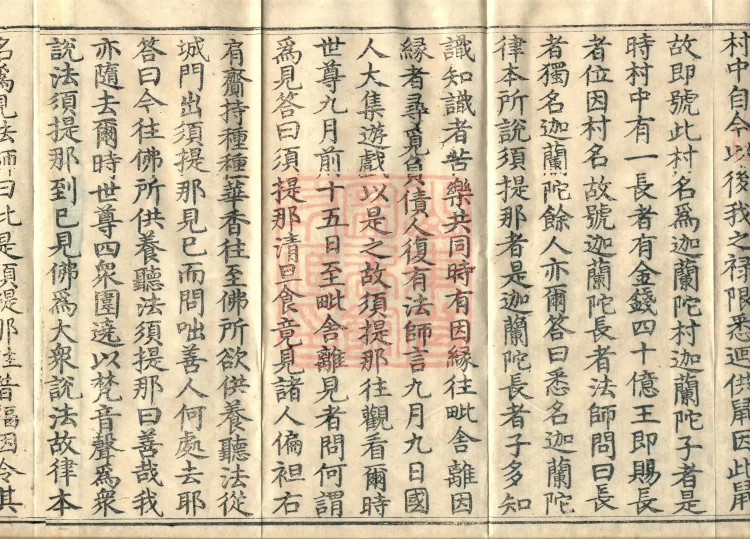 村中自今以後我之禄限悉迴供鼠因此鼠
故即號此村名為迦蘭陀村迦蘭陀子者是
時村中有一長者有金錢四十億王即賜長
者位因村名故號迦蘭陀長者法師問曰長
者獨名迦蘭陀餘人亦爾答曰悉名迦蘭陀
律本所說須提那者是迦蘭陀長者子多知
識知識者苦樂共同時有因緣往毗舍離因
緣者尋覓負債人復有法師言九月九日國
人大集遊戲以是之故須提那往觀看爾時
世尊九月前十五日至毗舍離見者問何謂
為見答曰須提那清旦食竟見諸人偏袒右
肩齎持種種華香往至佛所欲供養聽法從
城門出須提那見已而問咄善人何處去耶
答曰今往佛所供養聽法須提那曰善哉我
亦隨去爾時世尊四眾圍遶以梵音聲為眾
說法須提那到已見佛為大眾說法故律本
名為見法師曰此是須提那往昔福因令其